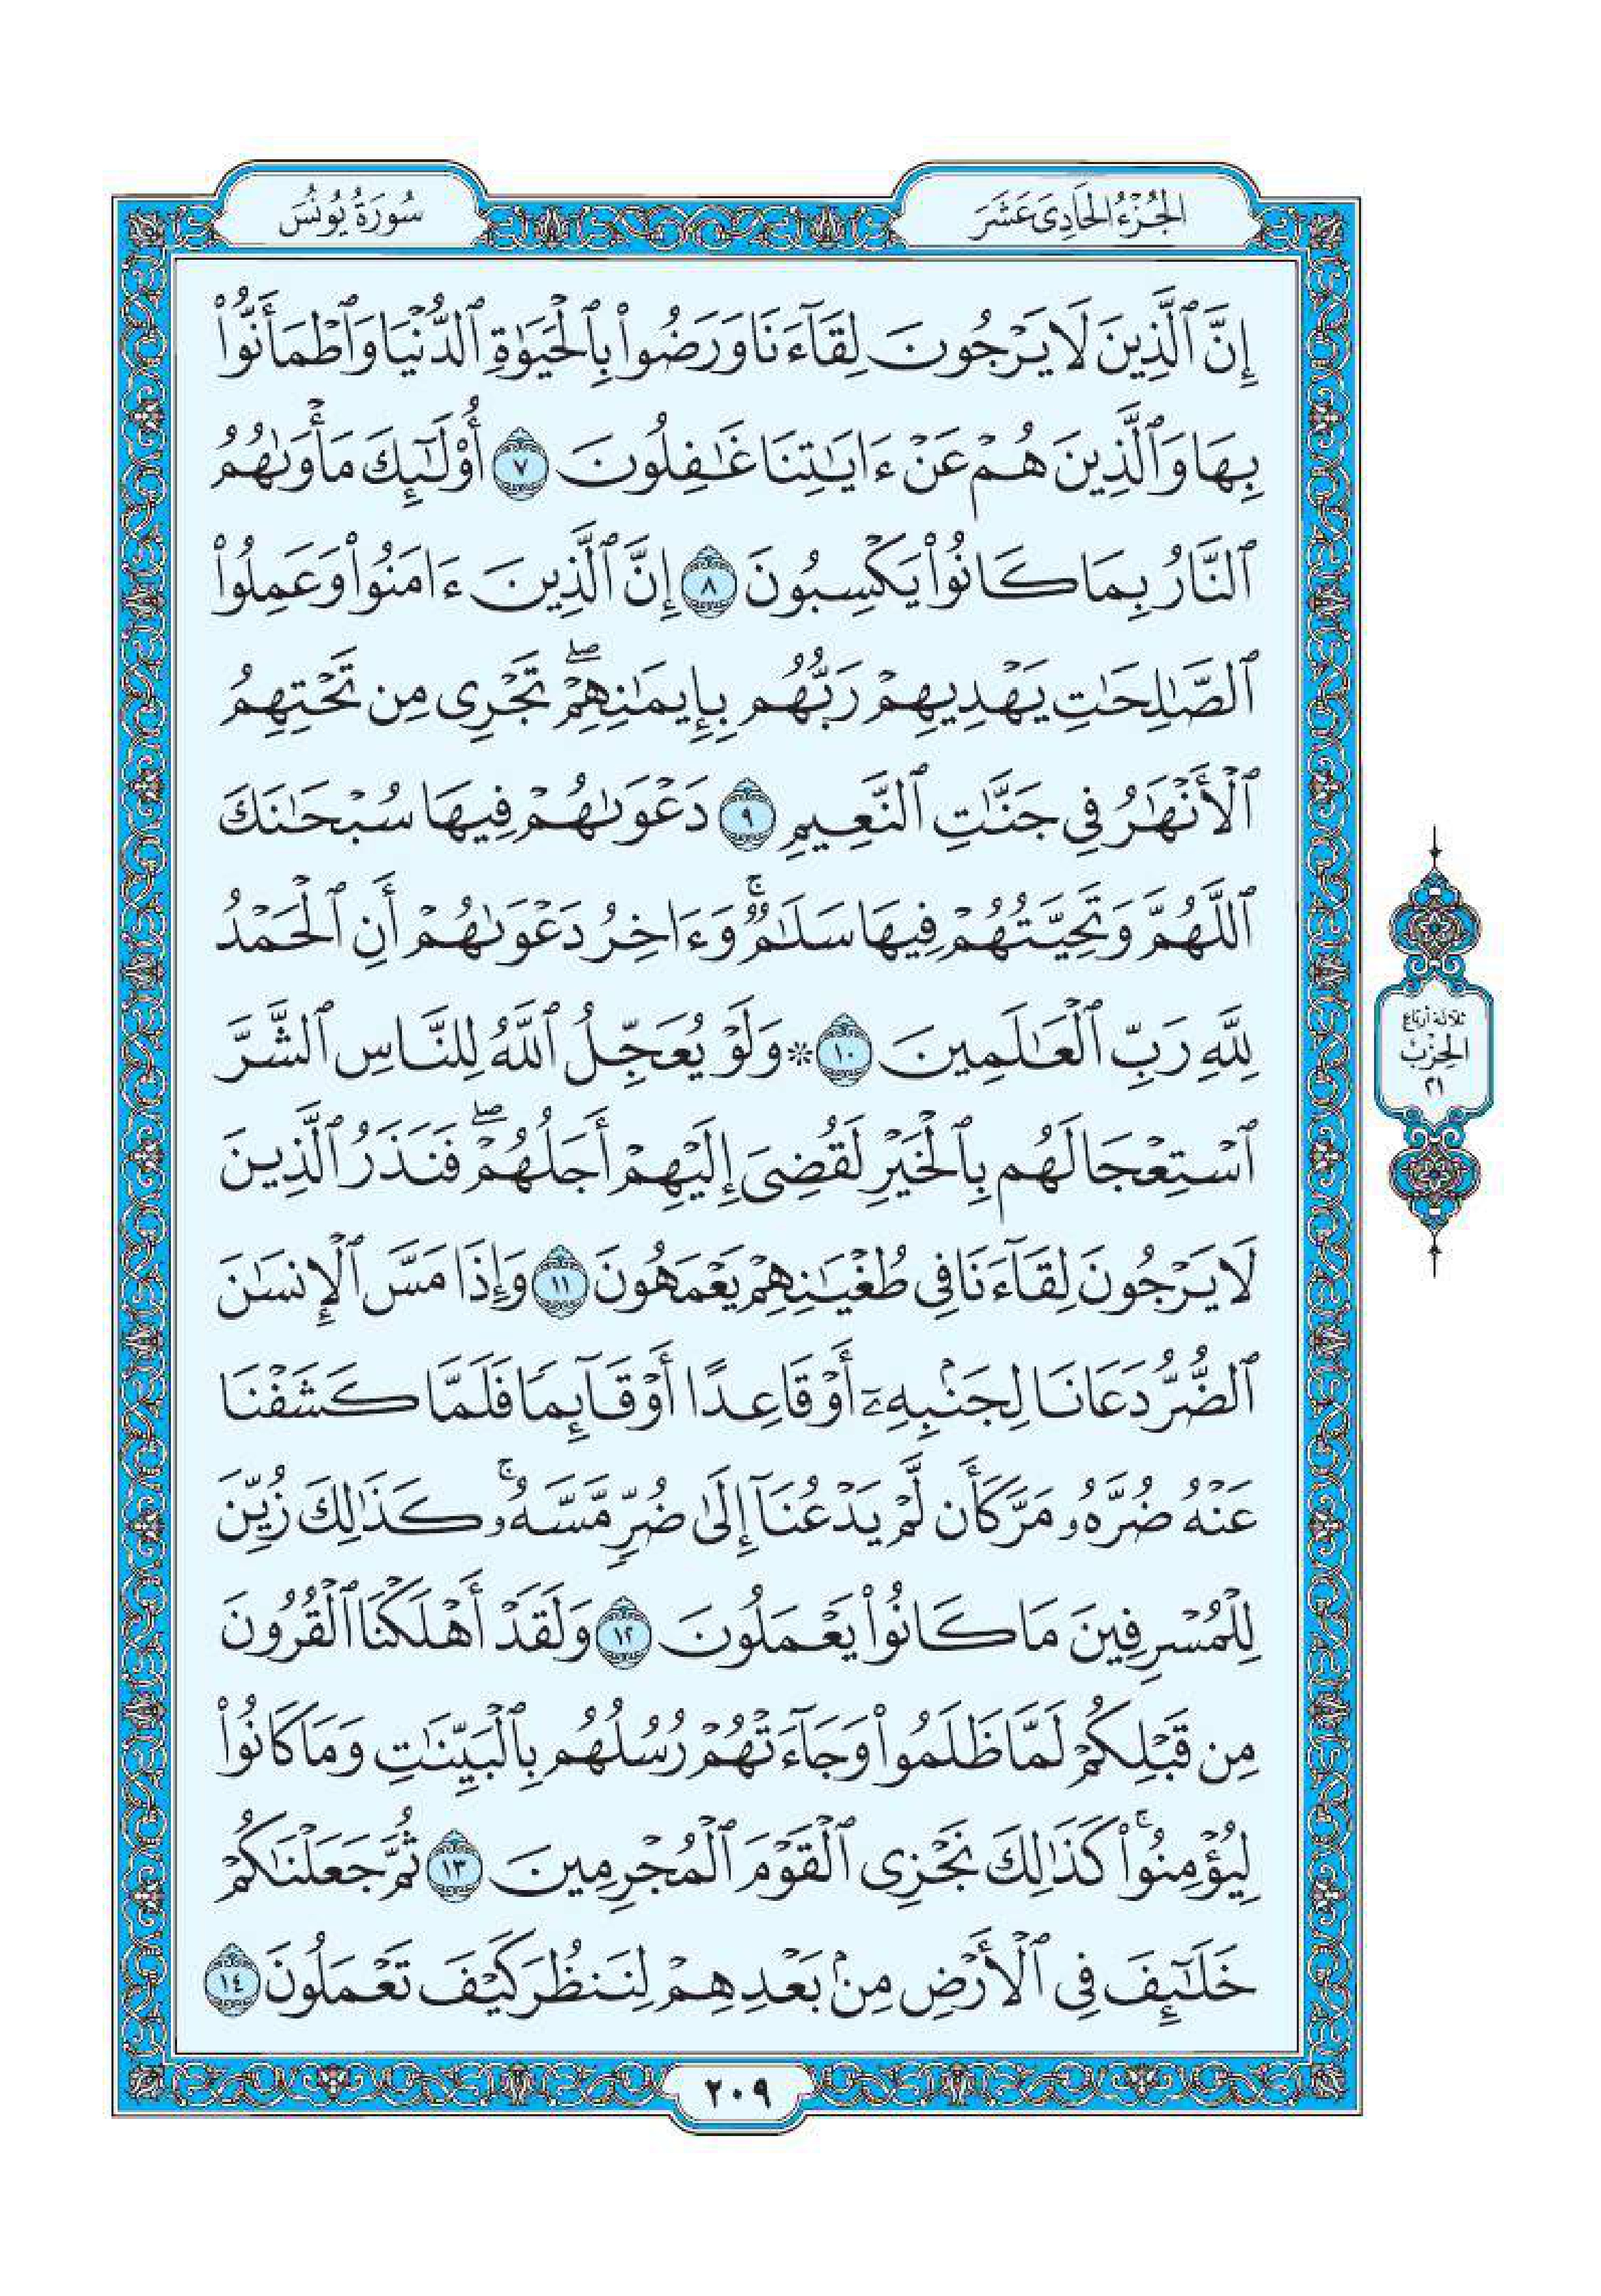 الجُزْءُ الحَادِيَ عَشَرَ
سُورَةُ يُونُسَ
إِنَّ ٱلَّذِينَ لَا يَرْجُونَ لِقَآءَنَا وَرَضُوا۟ بِٱلْحَيَوٰةِ ٱلدُّنْيَا وَٱطْمَأَنُّوا۟
بِهَا وَٱلَّذِينَ هُمْ عَنْ ءَايَـٰتِنَا غَـٰفِلُونَ ٧ أُو۟لَـٰٓئِكَ مَأْوَىٰهُمُ
ٱلنَّارُ بِمَا كَانُوا۟ يَكْسِبُونَ ٨ إِنَّ ٱلَّذِينَ ءَامَنُوا۟ وَعَمِلُوا۟
ٱلصَّـٰلِحَـٰتِ يَهْدِيهِمْ رَبُّهُم بِإِيمَـٰنِهِمْ ۖ تَجْرِى مِن تَحْتِهِمُ
ٱلْأَنْهَـٰرُ فِى جَنَّـٰتِ ٱلنَّعِيمِ ٩ دَعْوَىٰهُمْ فِيهَا سُبْحَـٰنَكَ
ٱللَّهُمَّ وَتَحِيَّتُهُمْ فِيهَا سَلَـٰمٌ ۚ وَءَاخِرُ دَعْوَىٰهُمْ أَنِ ٱلْحَمْدُ
لِلَّهِ رَبِّ ٱلْعَـٰلَمِينَ ١٠ ۞ وَلَوْ يُعَجِّلُ ٱللَّهُ لِلنَّاسِ ٱلشَّرَّ
ٱسْتِعْجَالَهُم بِٱلْخَيْرِ لَقُضِىَ إِلَيْهِمْ أَجَلُهُمْ ۖ فَنَذَرُ ٱلَّذِينَ
لَا يَرْجُونَ لِقَآءَنَا فِى طُغْيَـٰنِهِمْ يَعْمَهُونَ ١١ وَإِذَا مَسَّ ٱلْإِنسَـٰنَ
ٱلضُّرُّ دَعَانَا لِجَنۢبِهِۦٓ أَوْ قَاعِدًا أَوْ قَآئِمًا فَلَمَّا كَشَفْنَا
عَنْهُ ضُرَّهُۥ مَرَّ كَأَن لَّمْ يَدْعُنَآ إِلَىٰ ضُرٍّ مَّسَّهُۥ ۚ كَذَٰلِكَ زُيِّنَ
لِلْمُسْرِفِينَ مَا كَانُوا۟ يَعْمَلُونَ ١٢ وَلَقَدْ أَهْلَكْنَا ٱلْقُرُونَ
مِن قَبْلِكُمْ لَمَّا ظَلَمُوا۟ وَجَآءَتْهُمْ رُسُلُهُم بِٱلْبَيِّنَـٰتِ وَمَا كَانُوا۟
لِيُؤْمِنُوا۟ ۚ كَذَٰلِكَ نَجْزِى ٱلْقَوْمَ ٱلْمُجْرِمِينَ ١٣ ثُمَّ جَعَلْنَـٰكُمْ
خَلَـٰٓئِفَ فِى ٱلْأَرْضِ مِنۢ بَعْدِهِمْ لِنَنظُرَ كَيْفَ تَعْمَلُونَ ١٤
ثلاثة أرباع
الحِزْب
٢١
٢٠٩